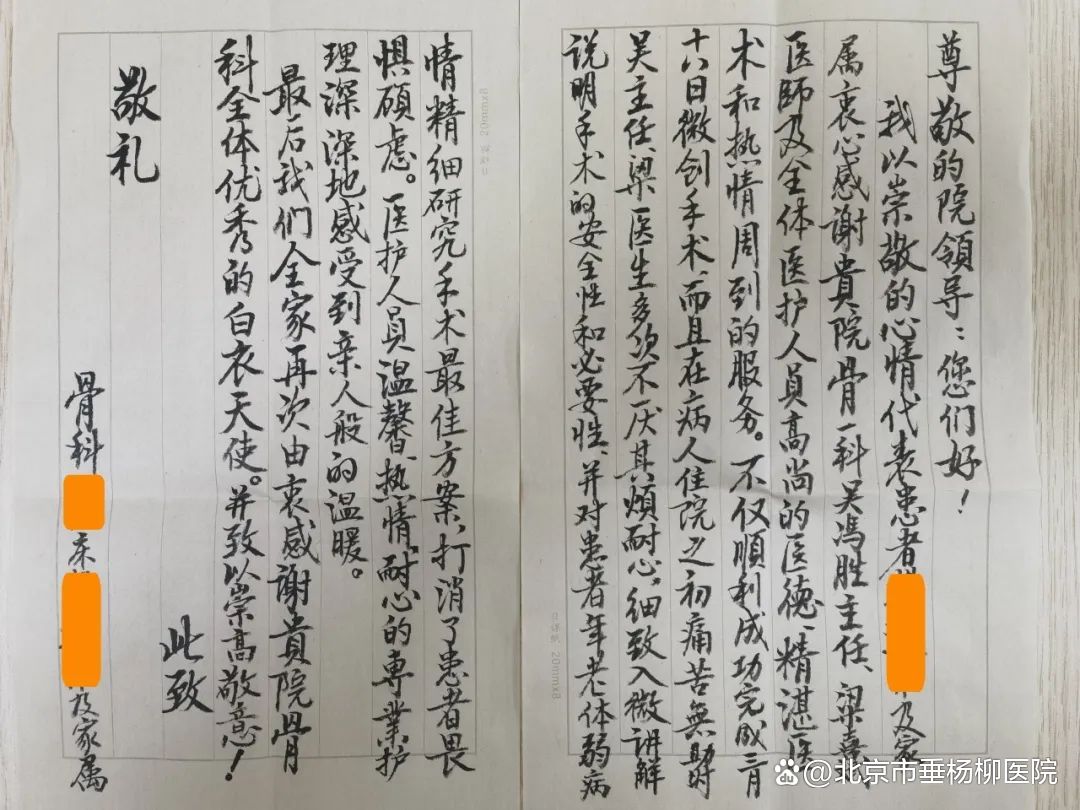 尊敬的院領导：您们好！
我以崇敬的心情代表患者 及家
属衷心感谢貴院骨一科吴冯胜主任、梁喜
医師及全体医护人员高尚的医德、精湛医
术和热情周到的服务。不仅順利成功完成三月
十八日微创手术，而且在病人住院之初痛苦無助时
吴主任、梁医生多次不厌其烦耐心、细致入微讲解
说明手术的安全性和必要性、并对患者年老体弱病
情精细研究手术最佳方案，打消了患者畏
惧硕虑。医护人员温馨、热情、耐心的專業护
理深深地感受到亲人般的温暖。
最后我们全家再次由衷感谢貴院骨
科全体优秀的白衣天使。并致以崇高敬意！
此致
敬礼
骨科 床 及家属
20mmx8
@北京市垂杨柳医院